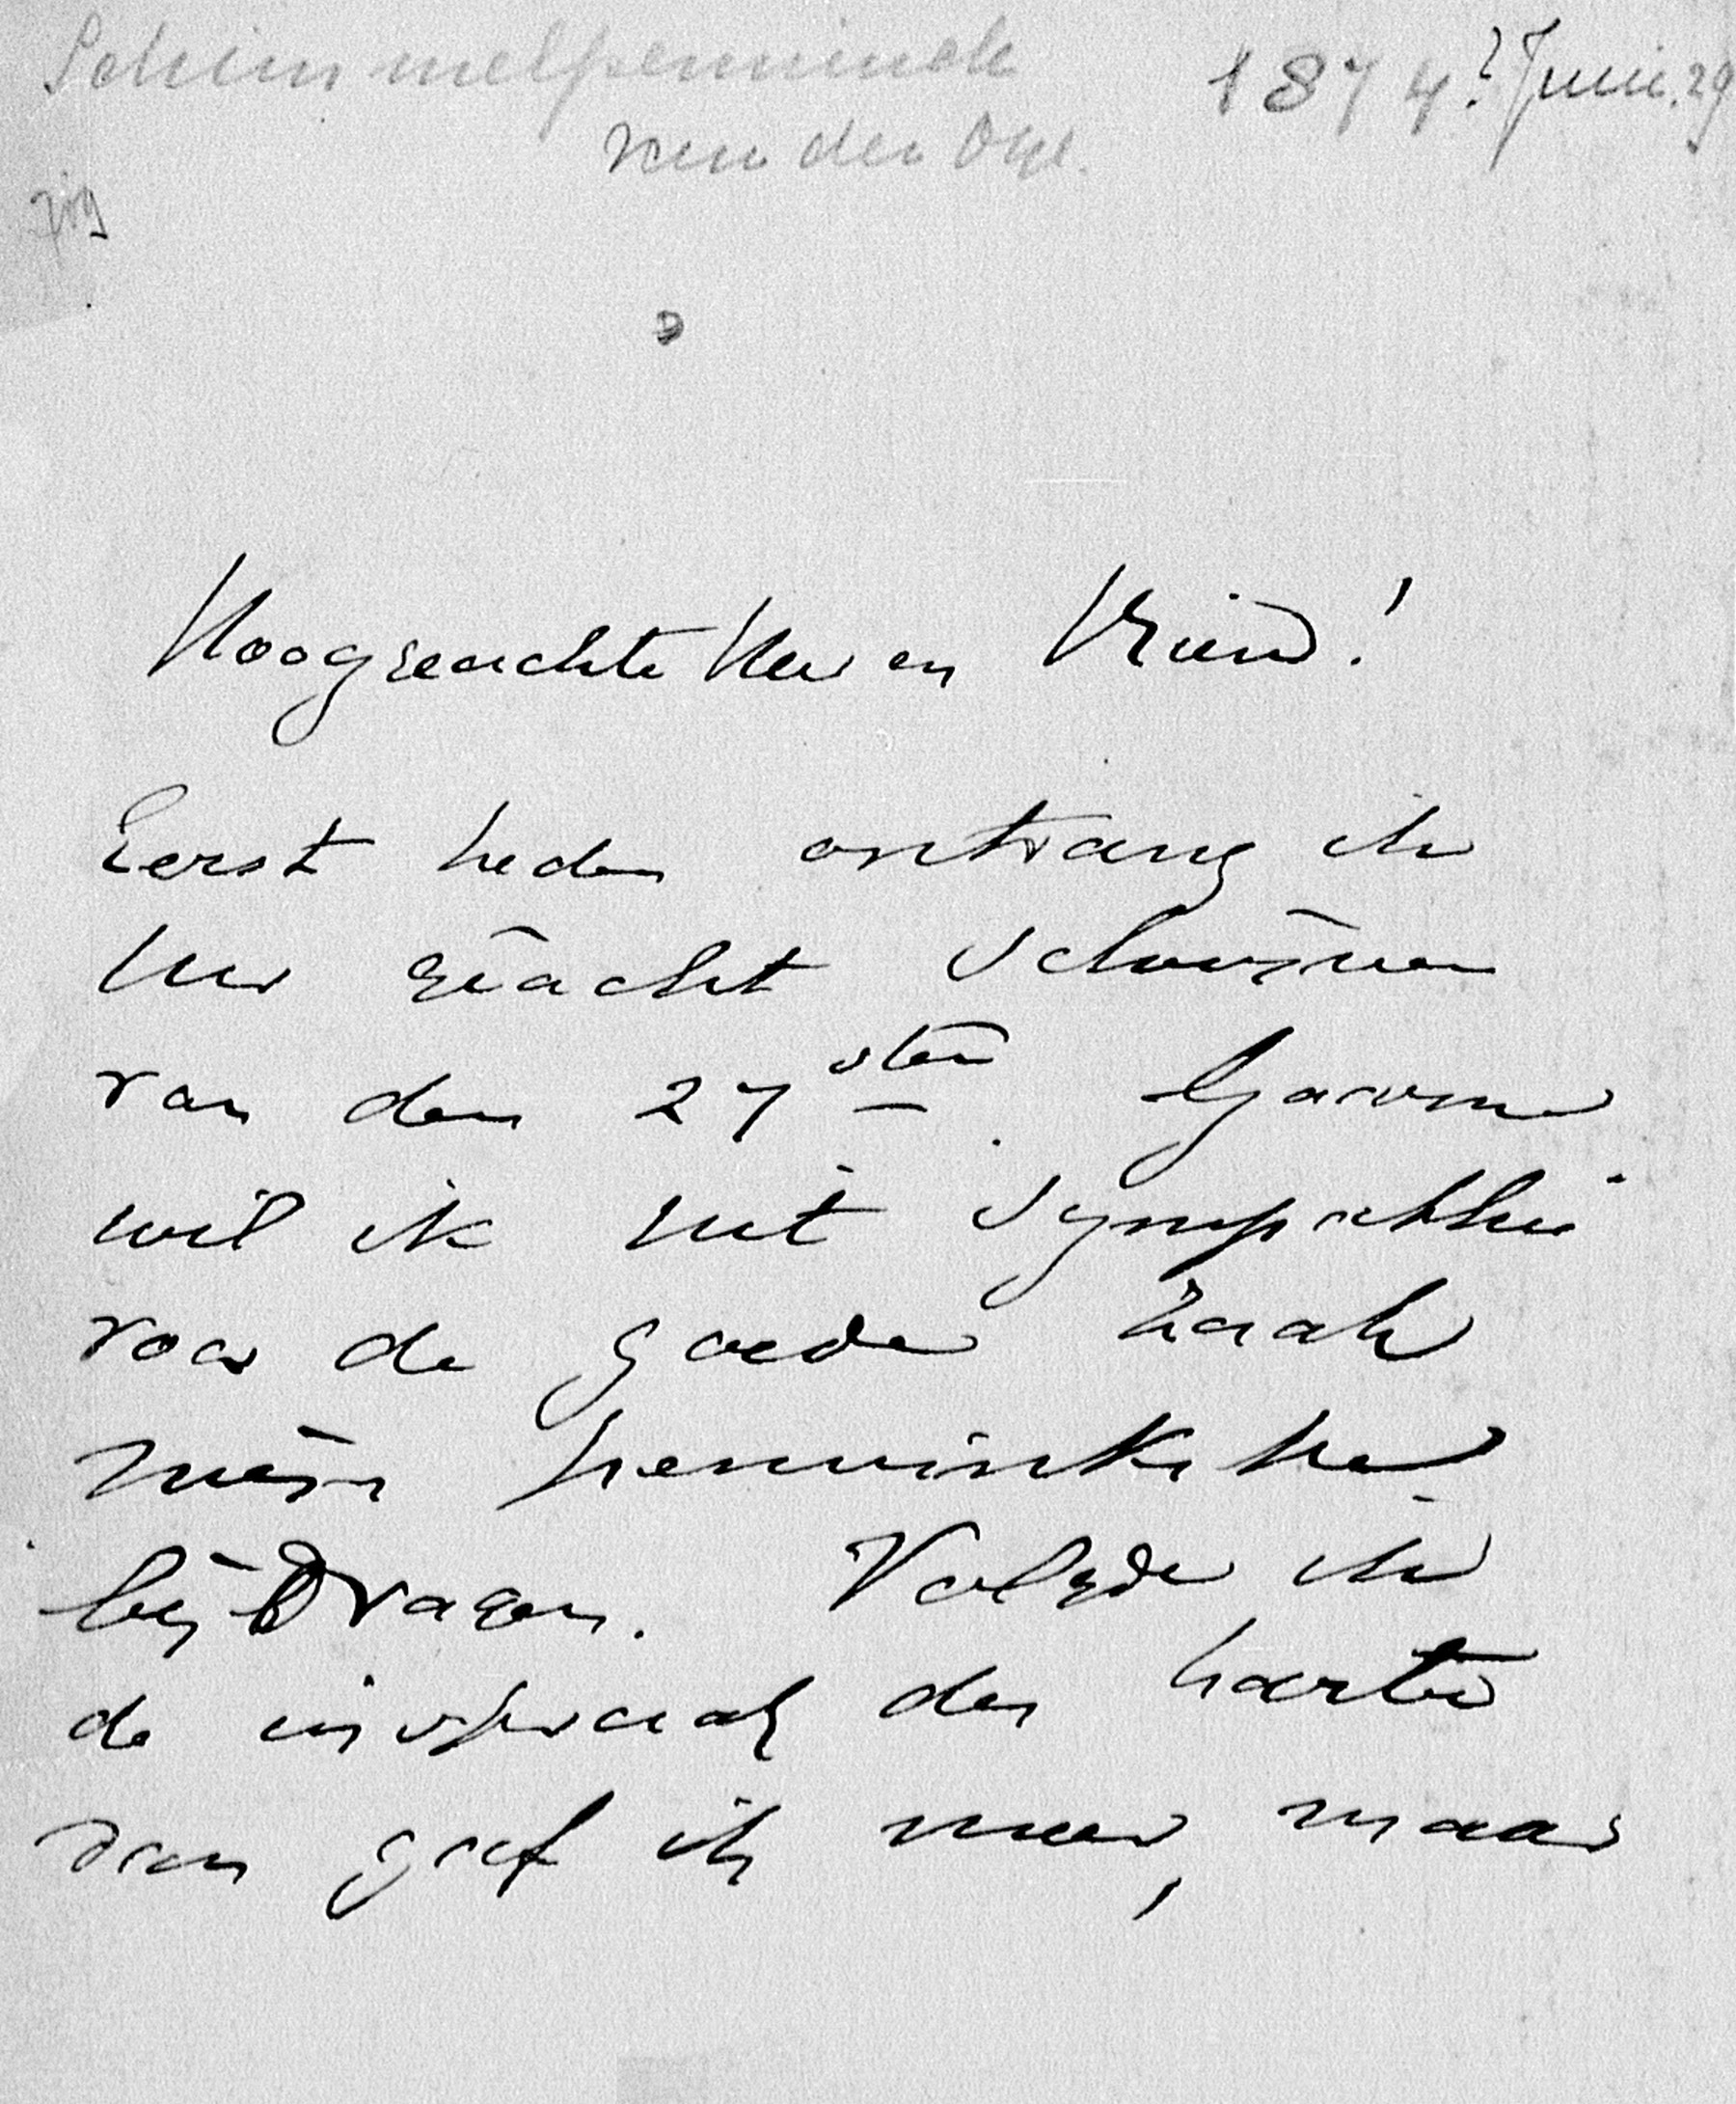 Schimmelpenninck 1874? Juni. 29
van der Oye.
Hooggeachte Heer en Vriend!
Eerst heden ontvang ik
Uw geacht schrijven
van den 27sten. Gaarne
wil ik uit sympathie
voor de goede zaak
mijn penninkske
bijdragen. Volgde ik
de inspraak des harten
dan gaf ik meer, maar